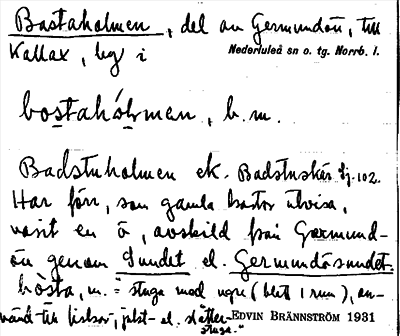 Bastaholmen, del av Germundön, till
Kallax, beg i
Nederluleå sn o. tg. Norrb. l.
bo̱staho̱lmen, b. m.
Badstuholmen ek. Badstuskär Ej. 102.
Har förr, som gamla kartor utvisa,
varit en ö, avskild från Germund-
ön genom Sundet el. Germundösundet.
bòsta, m. = stuga med ugn (blott 1 rum), an-
vänd till fiskar, jakt- el. slåtter-
stuga."
EDVIN BRÄNNSTRÖM 1931